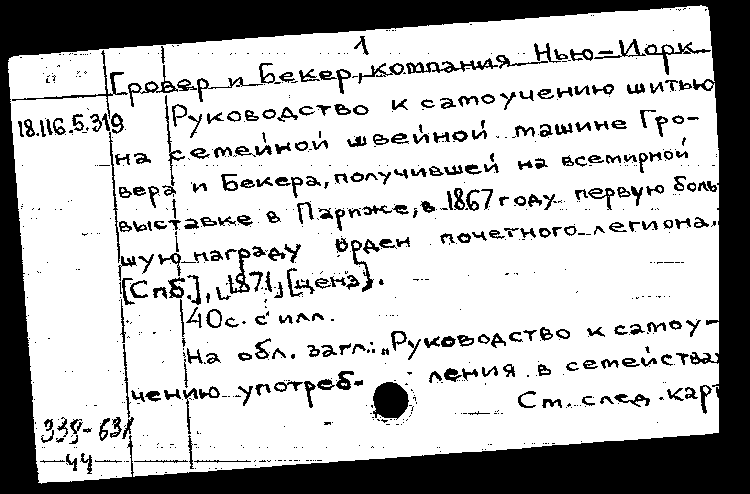 1
Гровер и Бекер, компания Нью-Йорк
18.116.5.319 Руководство к самоучению шитью
на семейной швейной машине Гро-
вера и Бекера, получившей на всемирной
выставке в Париже, в 1867 году первую боль
шую награду орден почетного легиона.
[Спб.], 1871, [цена].
40с. с илл.
На обл. загл.: „Руководство к самоу-
чению употреб- ления в семействах
338-631 Ст. след. карт
44